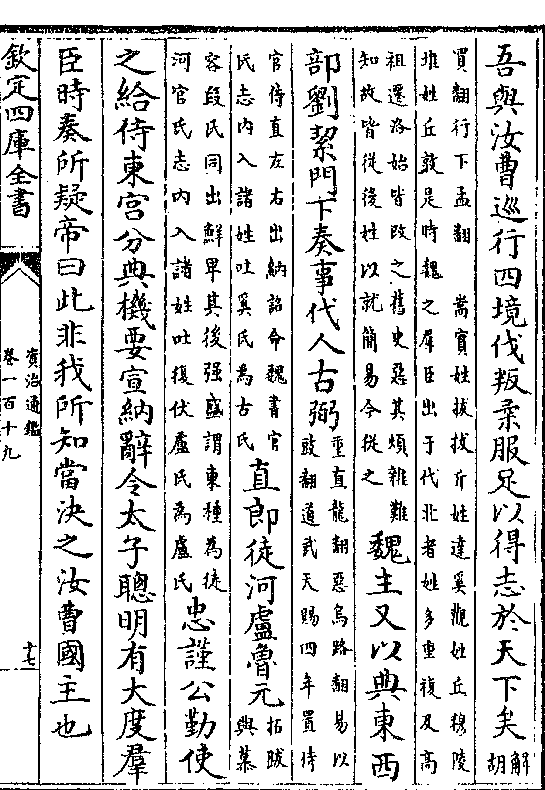 吾與汝曹巡行四境伐叛柔服足以得志於天下矣解
胡
買翻行下孟翻 嵩實姓拔拔斤姓達奚觀姓丘穆陵
堆姓丘敦是時魏之羣臣出于代北者姓多重複及高
祖遷洛始皆改之舊史惡其煩雜難
知故皆從後姓以就簡易今從之
魏主又以典東西
部劉絜門下奏事代人古弼
重直龍翻惡烏路翻易以
豉翻道武天賜四年置侍
官侍直左右出納詔命魏書官
氏志内入諸姓吐奚氏為古氏
直郎徒河盧魯元
拓跋
與慕
容段氏同出鮮卑其後强盛謂東種為徒
河官氏志内入諸姓吐復伏盧氏為盧氏
忠謹公勤使
之給侍東宮分典機要宣納辭令太子聰明有大度羣
臣時奏所疑帝曰此非我所知當決之汝曹國主也
欽定四庫全書
資治通鑑
卷一百十九
十七